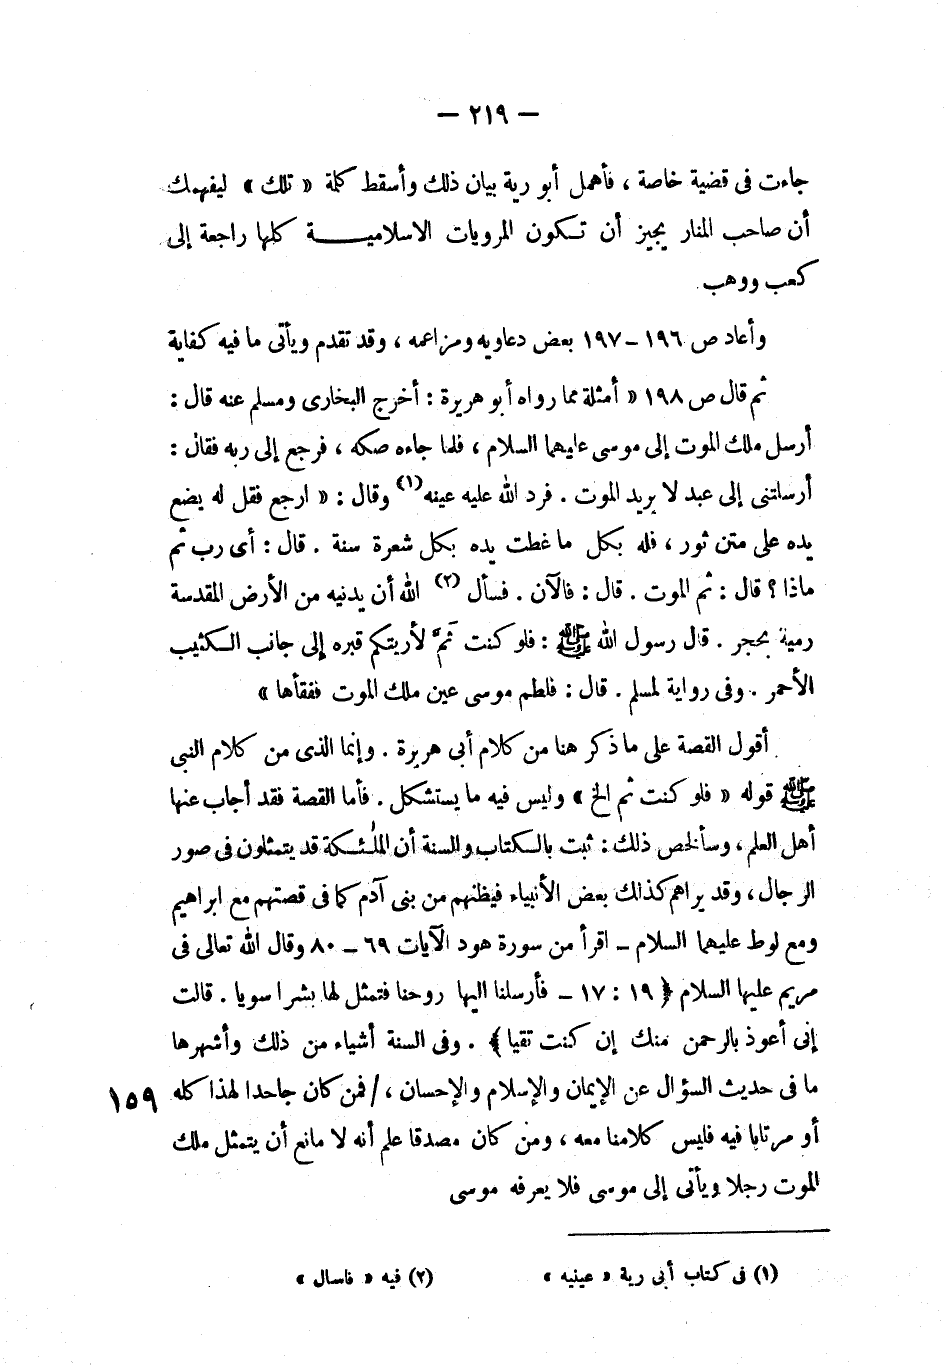 — ٢١٩ —
جاءت فى قضية خاصة ، فأهمل أبو رية بيان ذلك وأسقط كلمة « تلك » ليفهمك
أن صاحب المنار يجيز أن تكون المرويات الاسلاميـــة كلها راجعة إلى
كعب ووهب
وأعاد ص ١٩٦ – ١٩٧ بعض دعاويه ومزاعمه ، وقد تقدم ويأتى ما فيه كفاية
ثم قال ص ١٩٨ « أمثلة مما رواه أبو هريرة : أخرج البخارى ومسلم عنه قال :
أرسل ملك الموت إلى موسى عليهما السلام ، فلما جاءه صكه ، فرجع إلى ربه فقال :
أرسلتنى إلى عبد لا يريد الموت . فرد الله عليه عينه(١) وقال : « ارجع فقل له يضع
يده على متن ثور ، فله بكل ما غطت يده بكل شعرة سنة . قال : أى رب ثم
ماذا ؟ قال : ثم الموت . قال : فالآن . فسأل (٢) الله أن يدنيه من الأرض المقدسة
رمية بحجر . قال رسول الله ﷺ : فلو كنت ثَمَّ لأريتكم قبره إلى جانب الكثيب
الأحمر . وفى رواية لمسلم . قال : فلطم موسى عين ملك الموت ففقأها »
أقول القصة على ما ذكر هنا من كلام أبى هريرة . وإنما الذى من كلام النبى
ﷺ قوله « فلو كنت ثم الخ » وليس فيه ما يستشكل . فأما القصة فقد أجاب عنها
أهل العلم ، وسألخص ذلك : ثبت بالكتاب والسنة أن الملٰئكة قد يتمثلون فى صور
الرجال ، وقد يراهم كذلك بعض الأنبياء فيظنهم من بنى آدم كما فى قصتهم مع ابراهيم
ومع لوط عليهما السلام – اقرأ من سورة هود الآيات ٦٩ – ٨٠ وقال الله تعالى فى
مريم عليها السلام ﴿ ١٩ : ١٧ – فأرسلنا اليها روحنا فتمثل لها بشرا سويا . قالت
إنى أعوذ بالرحمن منك إن كنت تقيا ﴾ . وفى السنة أشياء من ذلك وأشهرها
ما فى حديث السؤال عن الإيمان والإسلام والإحسان ، / فمن كان جاحدا لهذا كله ١٥٩
أو مرتابا فيه فليس كلامنا معه ، ومن كان مصدقا علم أنه لا مانع أن يتمثل ملك
الموت رجلا ويأتى إلى موسى فلا يعرفه موسى
(١) فى كتاب أبى رية « عينيه » (٢) فيه « فاسال »